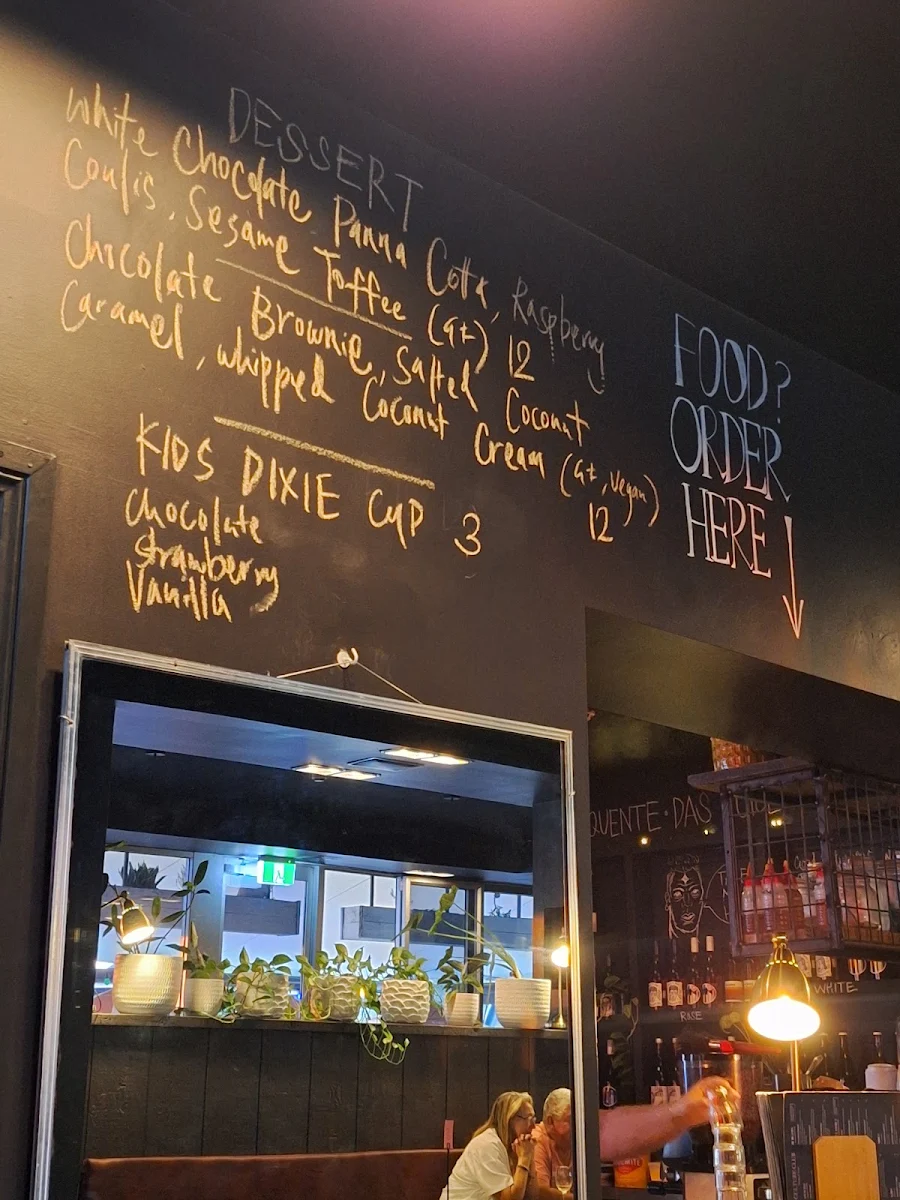 DESSERT
White Chocolate Panna Cotta, Raspberry
Coulis, Sesame Toffee (GF) 12
Chocolate Brownie, Salted Coconut
Caramel, whipped Coconut Cream (GF, Vegan)
12
KIDS DIXIE CUP 3
Chocolate
Strawberry
Vanilla
FOOD?
ORDER
HERE
QUENTE · DAS
WHITE
ROSE